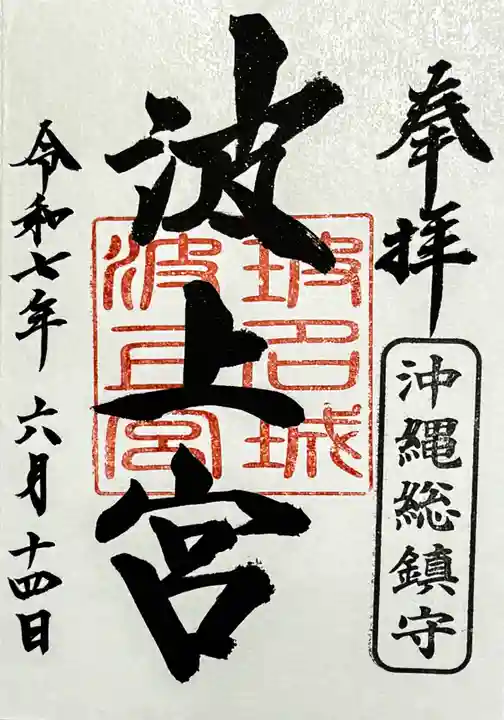 奉拝
沖縄総鎮守
波上宮
玻名城
波上宮
令和七年 六月 十四日